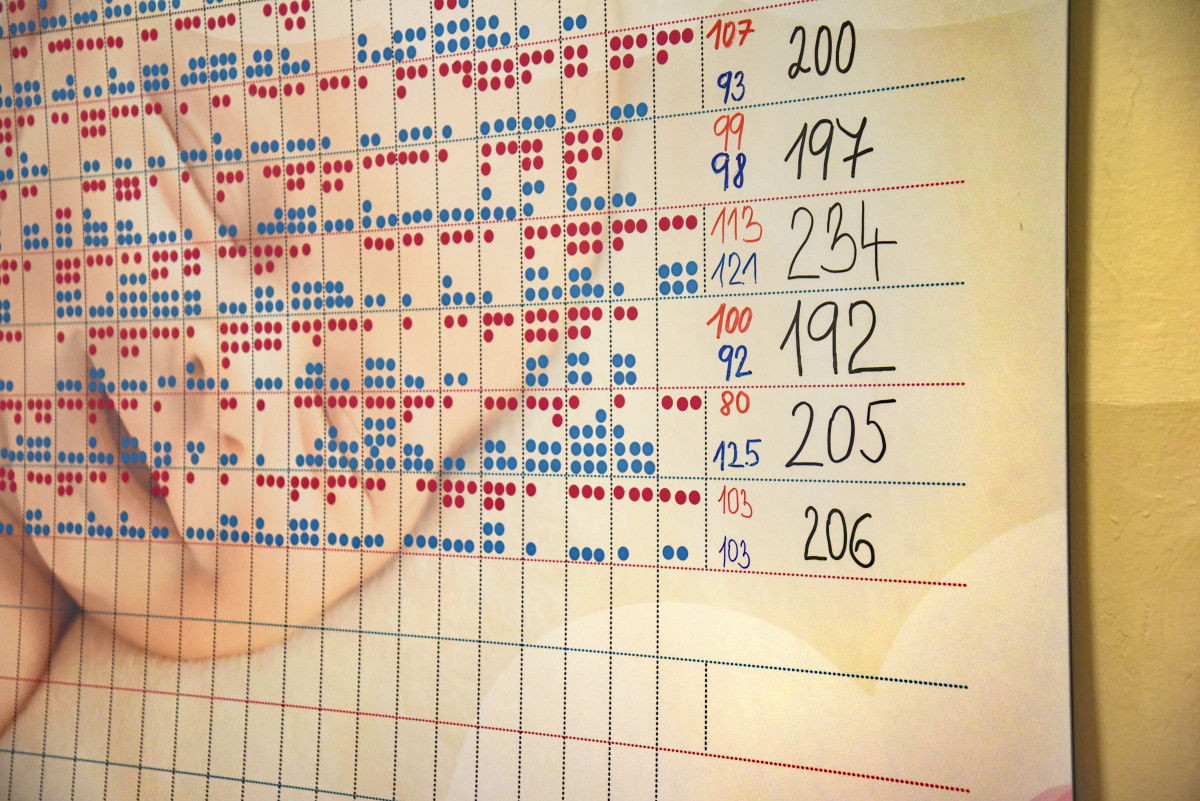 107
93 200
99
98 197
113
121 234
100
92 192
80
125 205
103
103 206